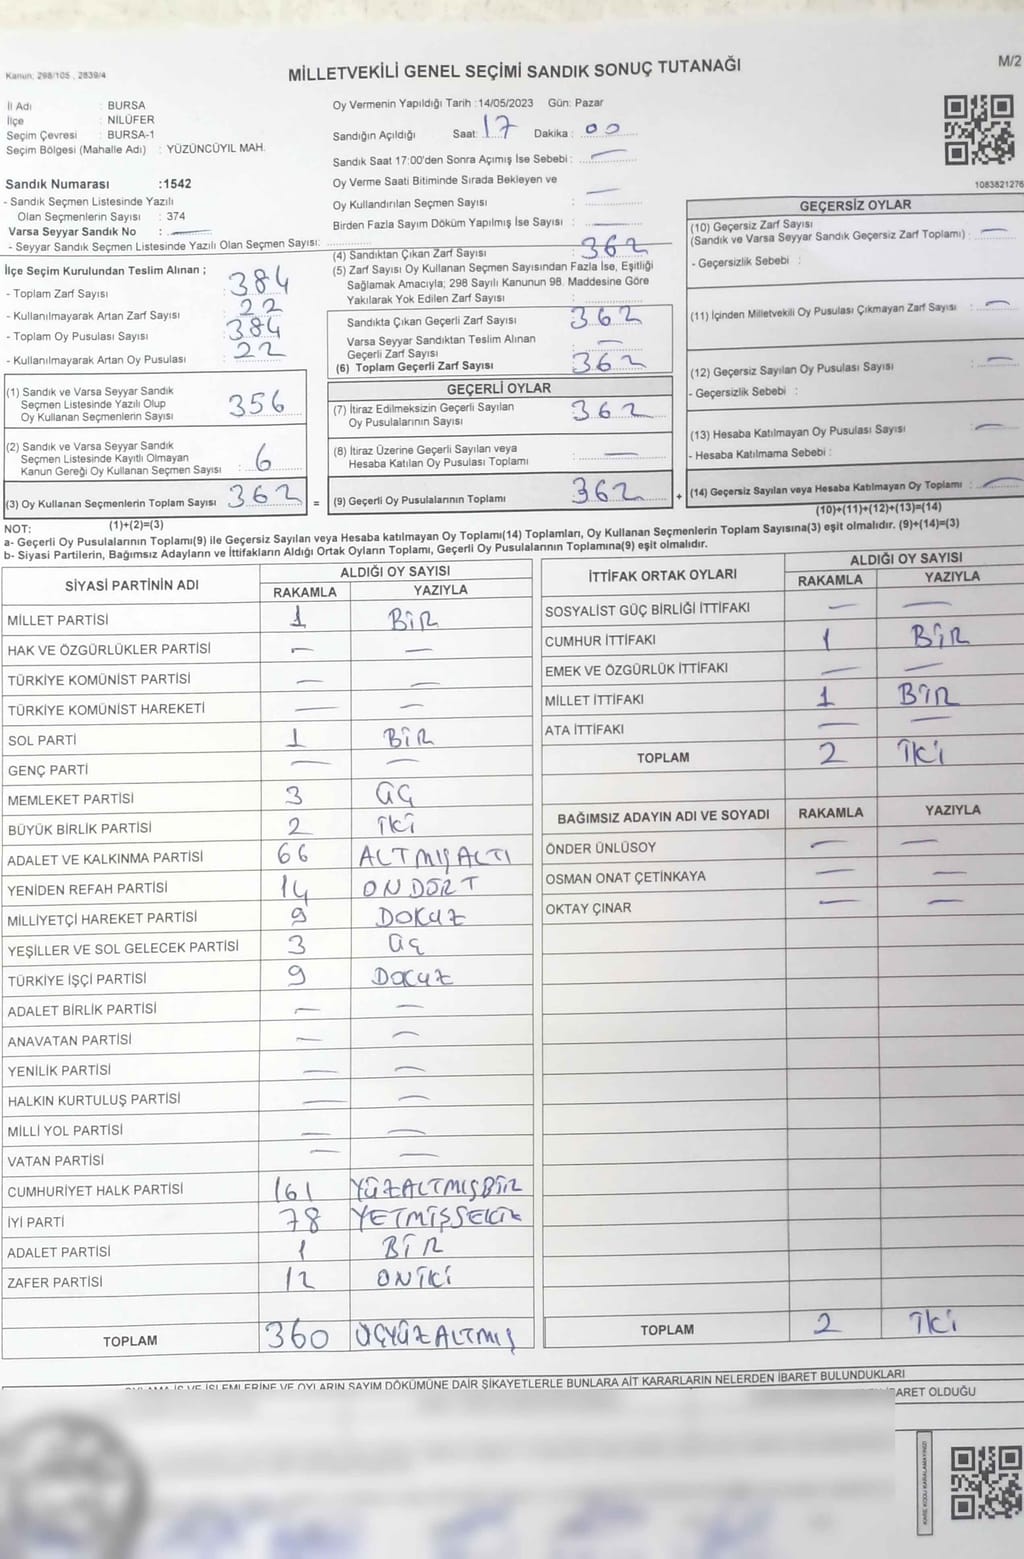 Kanun: 298/105 , 2839/4
MİLLETVEKİLİ GENEL SEÇİMİ SANDIK SONUÇ TUTANAĞI
M/2
İl Adı : BURSA
İlçe : NİLÜFER
Seçim Çevresi : BURSA-1
Seçim Bölgesi (Mahalle Adı) : YÜZÜNCÜYIL MAH.
Sandık Numarası :1542
- Sandık Seçmen Listesinde Yazılı
Olan Seçmenlerin Sayısı : 374
Varsa Seyyar Sandık No : —
- Seyyar Sandık Seçmen Listesinde Yazılı Olan Seçmen Sayısı:
Oy Vermenin Yapıldığı Tarih :14/05/2023 Gün: Pazar
Sandığın Açıldığı Saat: 17 Dakika : 00
Sandık Saat 17:00'den Sonra Açımış İse Sebebi : —
Oy Verme Saati Bitiminde Sırada Bekleyen ve
Oy Kullandırılan Seçmen Sayısı : —
Birden Fazla Sayım Döküm Yapılmış İse Sayısı : —
1083821276
İlçe Seçim Kurulundan Teslim Alınan ;
- Toplam Zarf Sayısı : 384
- Kullanılmayarak Artan Zarf Sayısı : 22
- Toplam Oy Pusulası Sayısı : 384
- Kullanılmayarak Artan Oy Pusulası : 22
(1) Sandık ve Varsa Seyyar Sandık
Seçmen Listesinde Yazılı Olup
Oy Kullanan Seçmenlerin Sayısı : 356
(2) Sandık ve Varsa Seyyar Sandık
Seçmen Listesinde Kayıtlı Olmayan
Kanun Gereği Oy Kullanan Seçmen Sayısı : 6
(3) Oy Kullanan Seçmenlerin Toplam Sayısı : 362 =
(1)+(2)=(3)
(4) Sandıktan Çıkan Zarf Sayısı : 362
(5) Zarf Sayısı Oy Kullanan Seçmen Sayısından Fazla İse, Eşitliği
Sağlamak Amacıyla; 298 Sayılı Kanunun 98. Maddesine Göre
Yakılarak Yok Edilen Zarf Sayısı :
Sandıkta Çıkan Geçerli Zarf Sayısı : 362
Varsa Seyyar Sandıktan Teslim Alınan
Geçerli Zarf Sayısı : —
(6) Toplam Geçerli Zarf Sayısı : 362
GEÇERLİ OYLAR
(7) İtiraz Edilmeksizin Geçerli Sayılan
Oy Pusulalarının Sayısı : 362
(8) İtiraz Üzerine Geçerli Sayılan veya
Hesaba Katılan Oy Pusulası Toplamı : —
(9) Geçerli Oy Pusulalarının Toplamı : 362 +
GEÇERSİZ OYLAR
(10) Geçersiz Zarf Sayısı
(Sandık ve Varsa Seyyar Sandık Geçersiz Zarf Toplamı) : —
- Geçersizlik Sebebi :
(11) İçinden Milletvekili Oy Pusulası Çıkmayan Zarf Sayısı : —
(12) Geçersiz Sayılan Oy Pusulası Sayısı : —
- Geçersizlik Sebebi :
(13) Hesaba Katılmayan Oy Pusulası Sayısı : —
- Hesaba Katılmama Sebebi :
(14) Geçersiz Sayılan veya Hesaba Katılmayan Oy Toplamı : —
(10)+(11)+(12)+(13)=(14)
NOT:
a- Geçerli Oy Pusulalarının Toplamı(9) ile Geçersiz Sayılan veya Hesaba katılmayan Oy Toplamı(14) Toplamları, Oy Kullanan Seçmenlerin Toplam Sayısına(3) eşit olmalıdır. (9)+(14)=(3)
b- Siyasi Partilerin, Bağımsız Adayların ve İttifakların Aldığı Ortak Oyların Toplamı, Geçerli Oy Pusulalarının Toplamına(9) eşit olmalıdır.
SİYASİ PARTİNİN ADI ALDIĞI OY SAYISI
RAKAMLA YAZIYLA
MİLLET PARTİSİ 1 BİR
HAK VE ÖZGÜRLÜKLER PARTİSİ — —
TÜRKİYE KOMÜNİST PARTİSİ — —
TÜRKİYE KOMÜNİST HAREKETİ — —
SOL PARTİ 1 BİR
GENÇ PARTİ — —
MEMLEKET PARTİSİ 3 ÜÇ
BÜYÜK BİRLİK PARTİSİ 2 İKİ
ADALET VE KALKINMA PARTİSİ 66 ALTMIŞALTI
YENİDEN REFAH PARTİSİ 14 ONDÖRT
MİLLİYETÇİ HAREKET PARTİSİ 9 DOKUZ
YEŞİLLER VE SOL GELECEK PARTİSİ 3 ÜÇ
TÜRKİYE İŞÇİ PARTİSİ 9 DOKUZ
ADALET BİRLİK PARTİSİ — —
ANAVATAN PARTİSİ — —
YENİLİK PARTİSİ — —
HALKIN KURTULUŞ PARTİSİ — —
MİLLİ YOL PARTİSİ — —
VATAN PARTİSİ — —
CUMHURİYET HALK PARTİSİ 161 YÜZALTMIŞBİR
İYİ PARTİ 78 YETMİŞSEKİZ
ADALET PARTİSİ 1 BİR
ZAFER PARTİSİ 12 ONİKİ
TOPLAM 360 ÜÇYÜZALTMIŞ
İTTİFAK ORTAK OYLARI ALDIĞI OY SAYISI
RAKAMLA YAZIYLA
SOSYALİST GÜÇ BİRLİĞİ İTTİFAKI — —
CUMHUR İTTİFAKI 1 BİR
EMEK VE ÖZGÜRLÜK İTTİFAKI — —
MİLLET İTTİFAKI 1 BİR
ATA İTTİFAKI — —
TOPLAM 2 İKİ
BAĞIMSIZ ADAYIN ADI VE SOYADI RAKAMLA YAZIYLA
ÖNDER ÜNLÜSOY — —
OSMAN ONAT ÇETİNKAYA — —
OKTAY ÇINAR — —
TOPLAM 2 İKİ
İŞLEMLERİNE VE OYLARIN SAYIM DÖKÜMÜNE DAİR ŞİKAYETLERLE BUNLARA AİT KARARLARIN NELERDEN İBARET BULUNDUKLARI
OLDUĞU